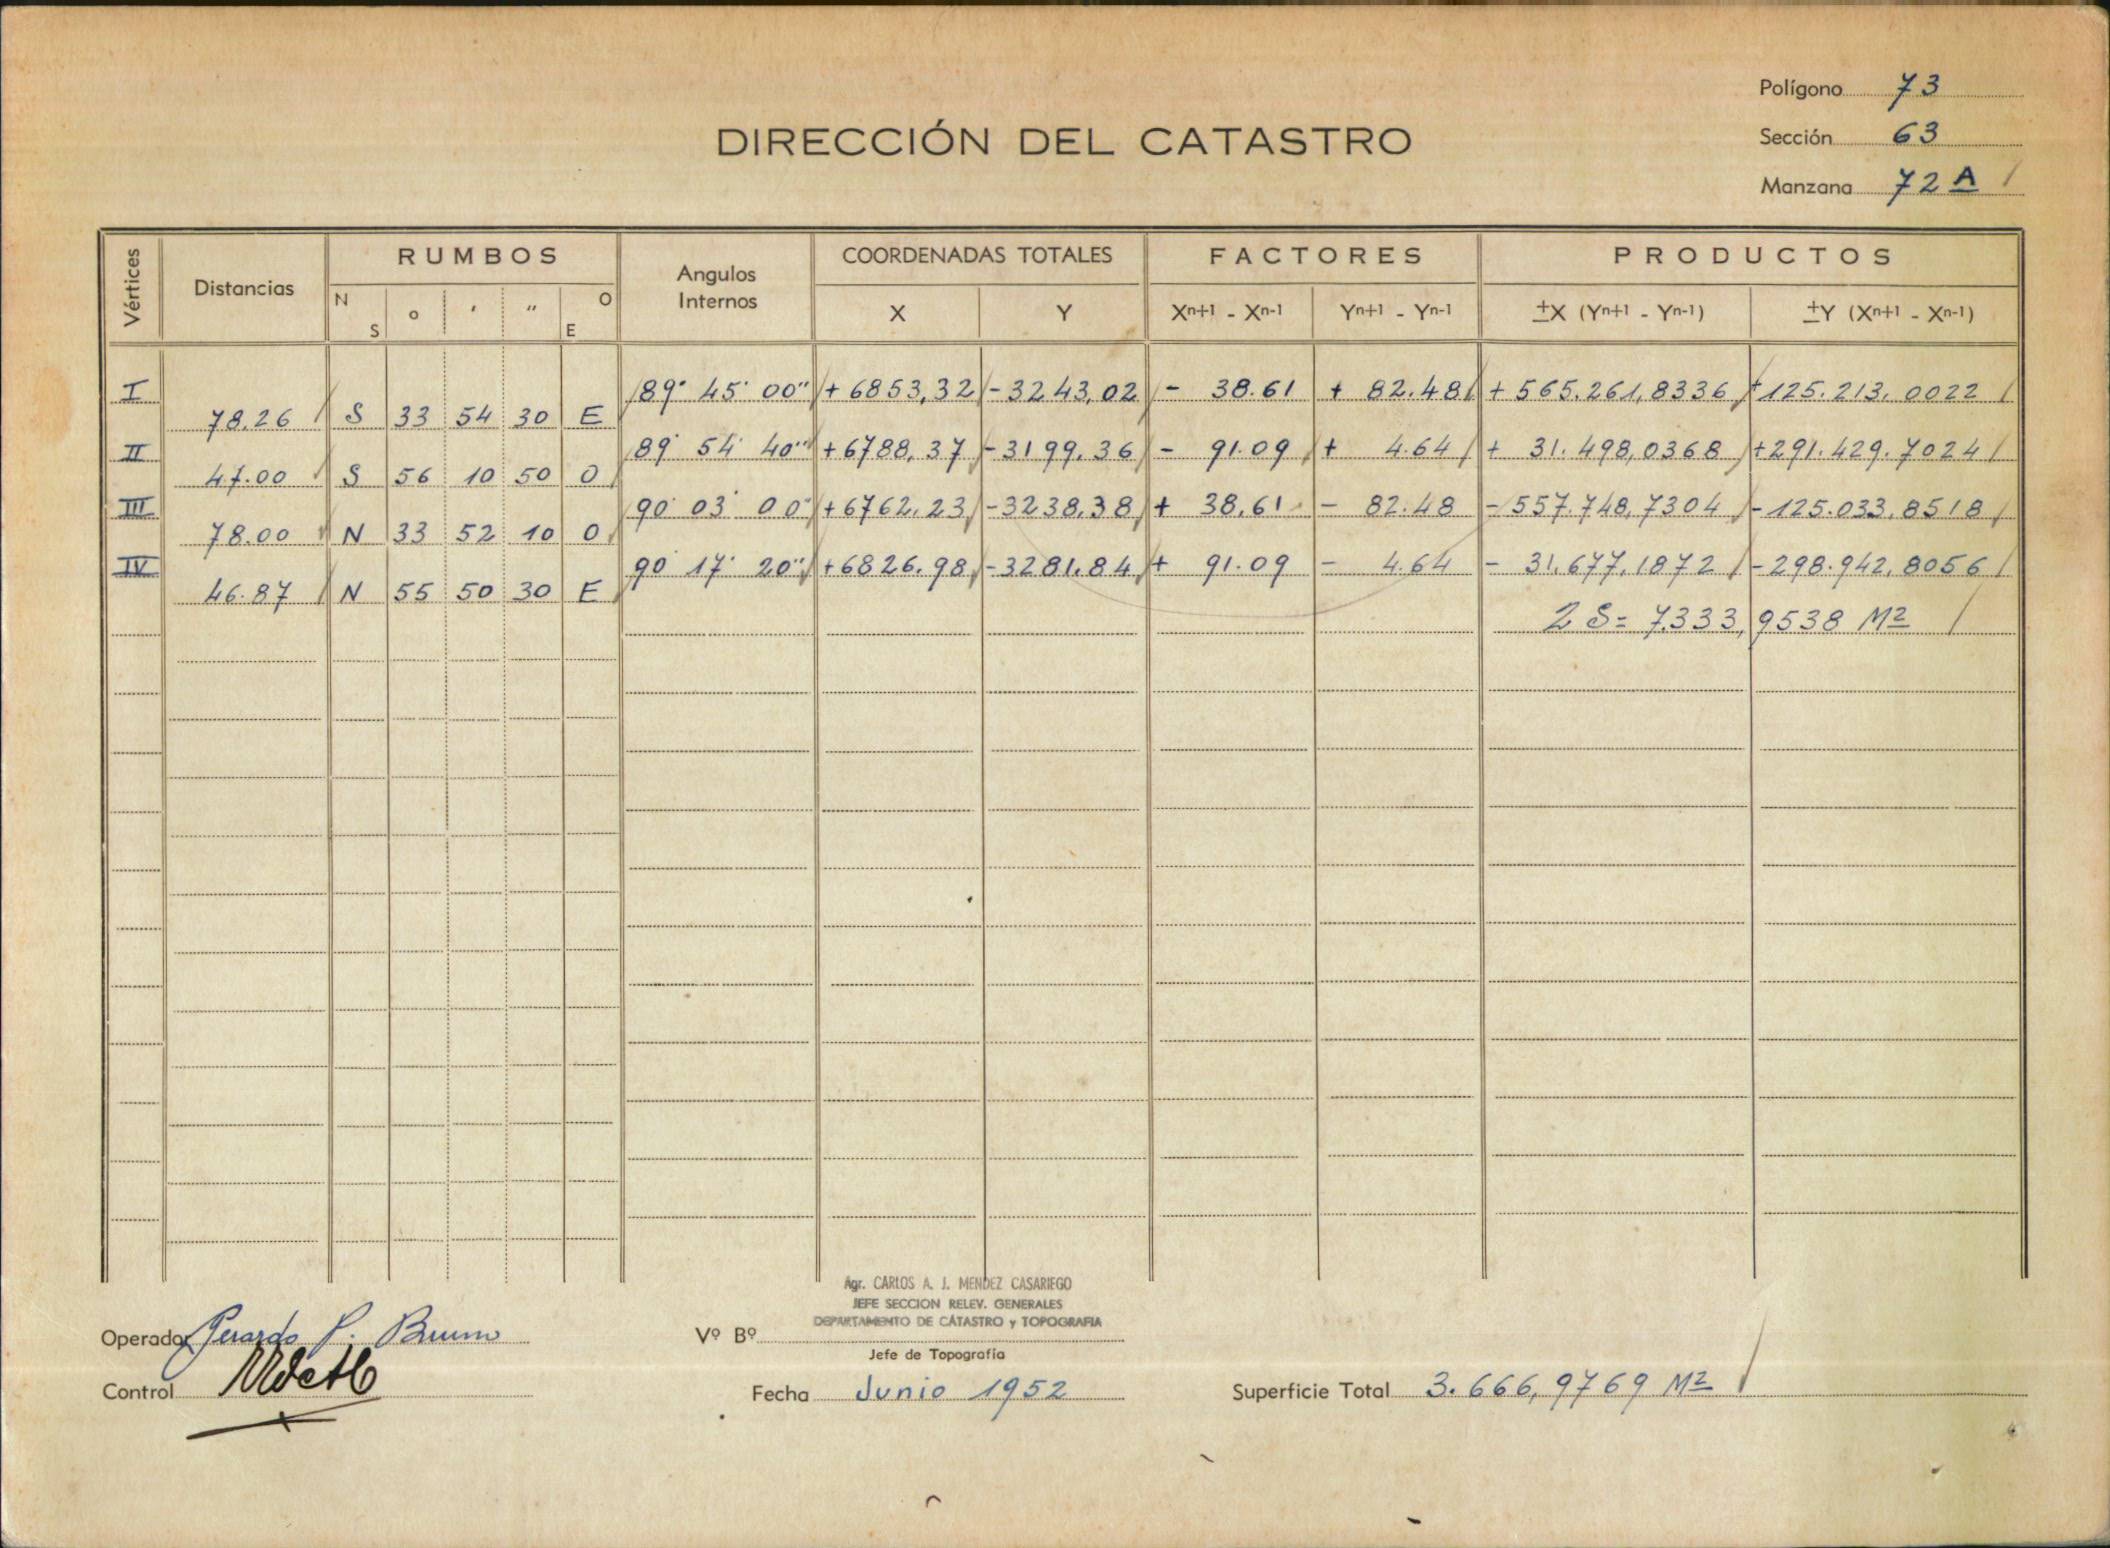 Polígono 73
DIRECCIÓN DEL CATASTRO
Sección 63
Manzana 72 A
Vértices Distancias RUMBOS Angulos Internos COORDENADAS TOTALES FACTORES PRODUCTOS
N S o ′ ″ O E X Y Xn+1 - Xn-1 Yn+1 - Yn-1 ±X (Yn+1 - Yn-1) ±Y (Xn+1 - Xn-1)
I 89° 45' 00" +6853,32 -3243,02 - 38.61 + 82.48 + 565.261,8336 +125.213.0022
78.26 S 33 54 30 E
II 89° 54' 40" +6788,37 -3199,36 - 91.09 + 4.64 + 31.498,0368 +291.429.7024
47.00 S 56 10 50 O
III 90° 03' 00" +6762,23 -3238,38 + 38,61 - 82.48 -557.748,7304 -125.033,8518
78.00 N 33 52 10 O
IV 90° 17' 20" +6826,98 -3281,84 + 91.09 - 4.64 - 31.677,1872 -298.942,8056
46.87 N 55 50 30 E
2 S = 7.333,9538 M2
Agr. CARLOS A. J. MENDEZ CASARIEGO
JEFE SECCION RELEV. GENERALES
DEPARTAMENTO DE CATASTRO y TOPOGRAFIA
Operador Gerardo P. Bruno
Vº Bº
Jefe de Topografía
Control
Fecha Junio 1952
Superficie Total 3.666,9769 M2